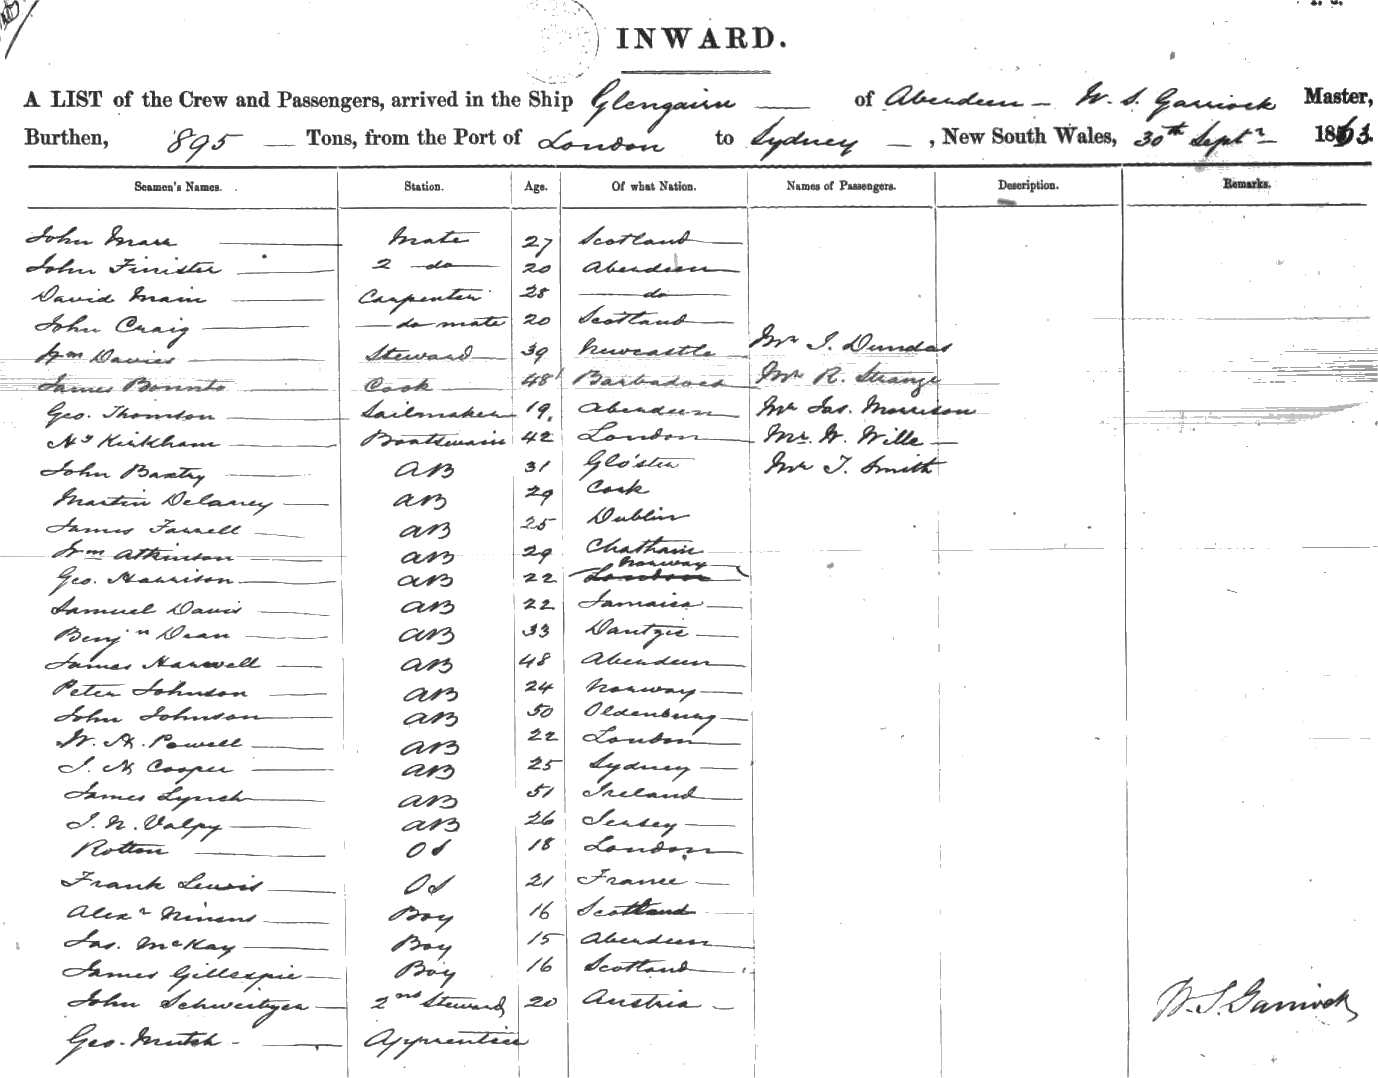 INWARD.
A LIST of the Crew and Passengers, arrived in the Ship Glengairn of Aberdeen W. S. Garriock Master,
Burthen, 895 Tons, from the Port of London to Sydney, New South Wales, 30th Septr 1863.
Seamen's Names. Station. Age. Of what Nation. Names of Passengers. Description. Remarks.
John Marr Mate 27 Scotland
John Finister 2 do 20 Aberdeen
David Main Carpenter 28 do
John Craig do mate 20 Scotland
Wm Davies Steward 39 Newcastle Mr J. Dundas
James Bonnto Cook 48 Barbadoes Mr R. Strange
Geo. Thomson Sailmaker 19 Aberdeen Mr Jas. Morrison
Hy Kirkham Boatswain 42 London Mr. W. Wills
John Baxtry AB 31 Glo'ster Mr T. Smith
Martin Delaney AB 29 Cork
James Farrell AB 25 Dublin
Wm Atkinson AB 29 Chatham
Geo. Harrison AB 22 London Norway
Samuel Davis AB 22 Jamaica
Benjn Dean AB 33 Dantzic
James Harwell AB 48 Aberdeen
Peter Johnson AB 24 Norway
John Johnson AB 50 Oldenburg
W. H. Powell AB 22 London
J. H Cooper AB 25 Sydney
James Lynch AB 51 Ireland
J. N. Valpy AB 26 Jersey
Rotton OS 18 London
Frank Lewis OS 21 France
Alexr Ninens Boy 16 Scotland
Jas. McKay Boy 15 Aberdeen
James Gillespie Boy 16 Scotland
John Schweitzer 2nd Steward 20 Austria W. S. Garriock
Geo. Mutch Apprentice